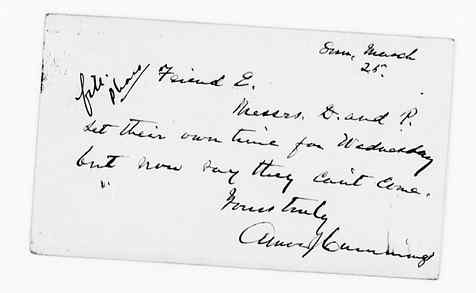 Sun, March
25.
Friend E.
Messrs. D. and P.
set their own time for Wednesday
but now say they can't come.
Yours truly
Amos J Cummings